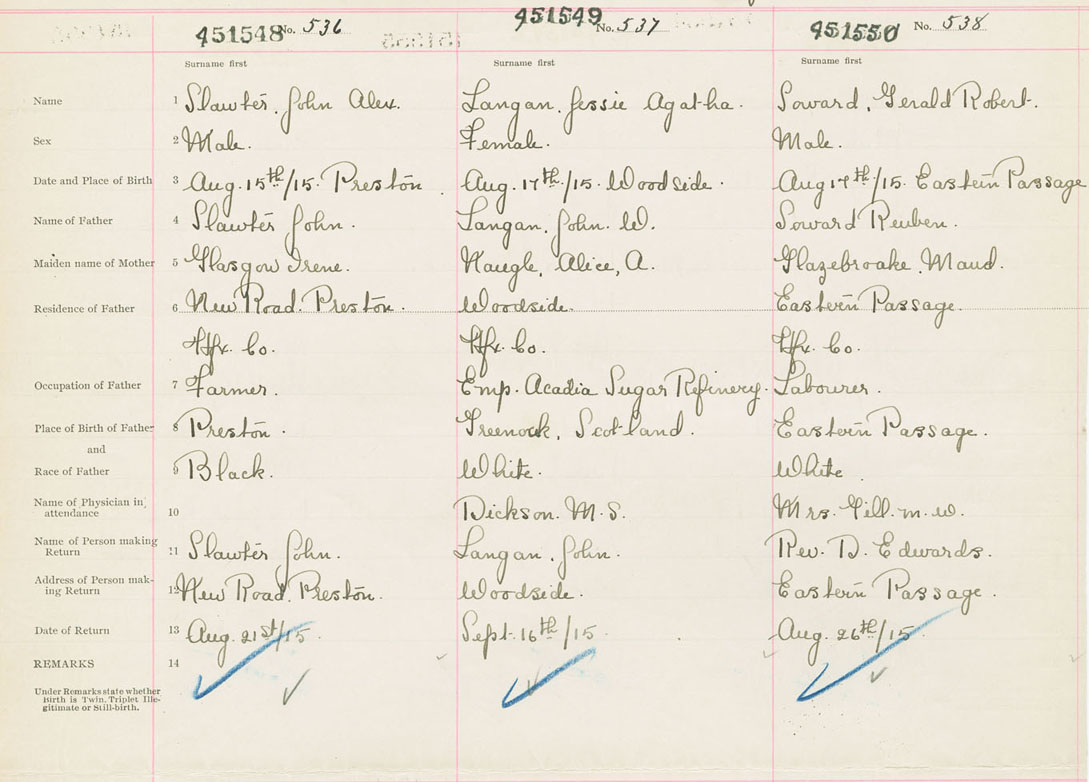 451548 No. 536 451549 No. 537 451550 No. 538
Surname first Surname first Surname first
Name 1 Slawter, John Alex. Langan, Jessie Agatha. Soward, Gerald Robert.
Sex 2 Male. Female. Male.
Date and Place of Birth 3 Aug. 15th/15. Preston Aug. 17th/15. Woodside. Aug 17th/15. Eastern Passage
Name of Father 4 Slawter John. Langan, John. W. Soward Reuben.
Maiden name of Mother 5 Glasgow Irene. Naugle, Alice, A. Glazebrooke, Maud.
Residence of Father 6 New Road. Preston. Woodside. Eastern Passage.
Hfx. Co. Hfx. Co. Hfx. Co.
Occupation of Father 7 Farmer. Emp. Acadia Sugar Refinery. Labourer.
Place of Birth of Father 8 Preston. Greenock, Scotland. Eastern Passage.
and
Race of Father 9 Black. White. White.
Name of Physician in
attendance 10 Dickson. M. S. Mrs. Gill. m. w.
Name of Person making
Return 11 Slawter John. Langan, John. Rev. D. Edwards.
Address of Person mak-
ing Return 12 New Road. Preston. Woodside. Eastern Passage.
Date of Return 13 Aug. 21st/15. Sept. 16th/15 Aug. 26th/15
REMARKS 14
Under Remarks state whether
Birth is Twin, Triplet Ille-
gitimate or Still-birth.